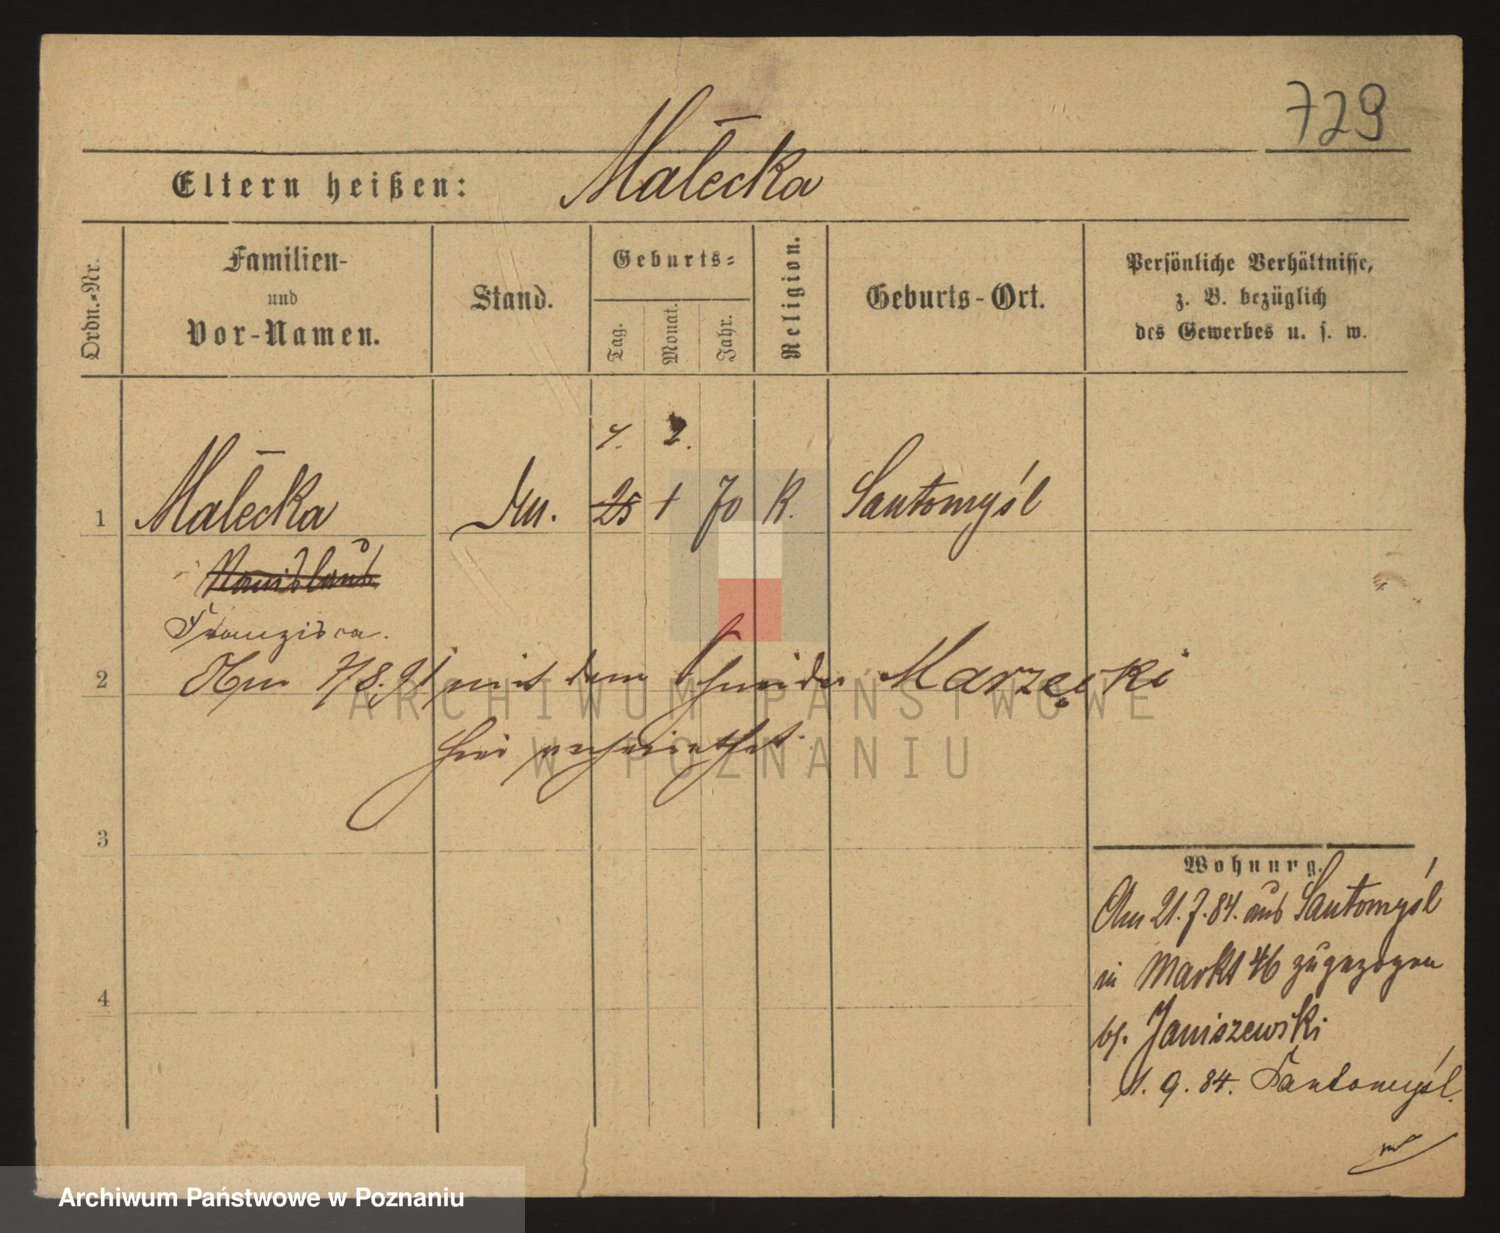 729
Eltern heißen: Małecka
Ordn.-Nr.
Familien-
und
Vor-Namen.
Stand.
Geburts-
Tag.
Monat.
Jahr.
Religion.
Geburts-Ort.
Persönliche Verhältnisse,
z. B. bezüglich
des Gewerbes u. s. w.
7. 2.
1 Małecka 25 1 70 K. Santomyśl
Stanislaus
Franziska.
2 Am 7/8.91 mit dem Schneider Marzęcki
hier verheirathet.
3
4
Wohnung.
Am 21.7.84. aus Santomyśl
in Markt 46 zugezogen
bj. Janiszewski
1. 9. 84. Santomyśl.
ARCHIWUM PAŃSTWOWE
W POZNANIU
Archiwum Państwowe w Poznaniu